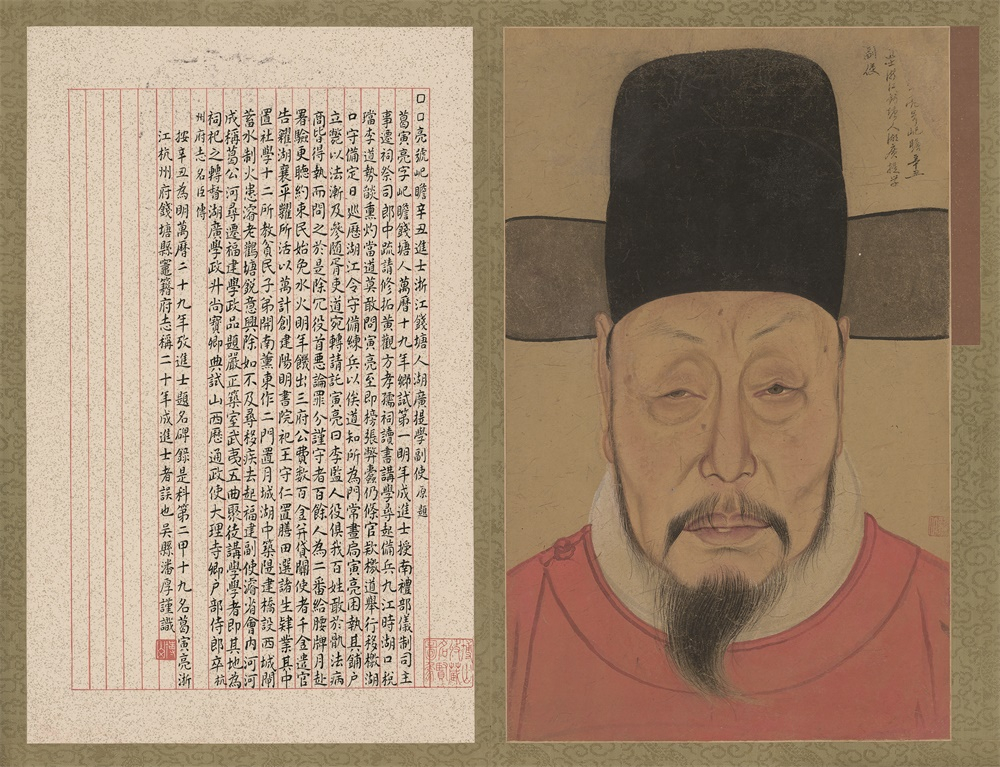 口口亮號屺瞻辛丑進士浙江錢塘人湖廣提學副使原題
葛寅亮字屺瞻錢塘人萬曆十九年鄉試第一明年成進士授南禮部儀制司主
事遷祠祭司郎中疏請修拓黃觀方孝孺祠讀書講學尋起備兵九江時湖口稅
璫李道勢燄熏灼當道莫敢問寅亮至即榜張弊蠹仍條官欵檄道舉行移檄湖
口守備定日巡歷湖江令守備練兵以俟道知所為門常晝扃寅亮困執其鋪戶
立斃以法漸及參隨胥吏道宛轉請託寅亮曰李監人役俱我百姓敢於骫法病
商皆得執而問之於是除冗役首惡論罪分謹守者百餘人為二番給腰牌月赴
署驗更聽約束民始免水火明年饑出三府公費數百金并貸關使者千金遣官
告糴湖襄平糶所活以萬計創建陽明書院祀王守仁置膳田選諸生肄業其中
置社學十二所教貧民子弟開南薰東作二門置月城湖中築隄建橋設西城閘
蓄水制火患濬老鸛塘銳意興除如不及尋移疾去起福建副使濬省會內河河
成稱葛公河尋遷福建學政品題嚴正築室武夷五曲聚徒講學學者即其地為
祠祀之轉督湖廣學政升尚寶卿典試山西歷通政使大理寺卿戶部侍郎卒杭
州府志名臣傳
按辛丑為明萬曆二十九年攷進士題名碑錄是科第二甲十九名葛寅亮浙
江杭州府錢塘縣竈籍府志稱二十年成進士者誤也吳縣潘厚謹識
亮號屺瞻辛丑
進士浙江錢塘人湖廣提學
副使